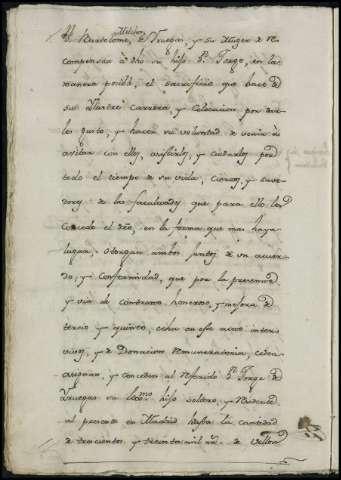 Bartolome de Truchas, y su Muger de Re
compensar a dho su hijo Dn. Jorge, en la
manera posible, el sacrificio que hace de
su Carrera, y Colocacion por dar
lo gusto, y hacer su voluntad de venir à
avitar con ellos, asistirles, y cuidarles por
todo el tiempo de su vida, Ciertos, y save
dores de las facultades que para ello les
concede el dro, en la forma que mas haya
lugar: otorgan ambos juntos de un acuer
do, y conformidad, que por la presente
y via de contrato honeroso, y mejora de
tercio y quinto, echa en este acto inter
vivos, y de Donacion Remuneratoria, ceden
asignan, y conceden al referido Dn. Jorge de
su hijo soltero, y Residente
al presente en Madrid hasta la cantidad
de trecientos y treinta mil rs. de Vellon